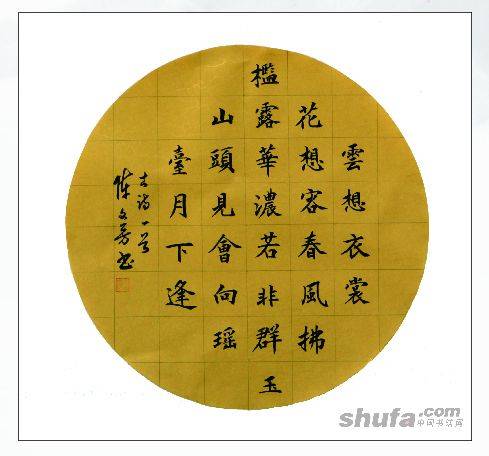 雲想衣裳
花想容春風拂
檻露華濃若非群玉
山頭見會向瑶
臺月下逢
古詩一首
陳文芳书
shufa.com
中国书法网